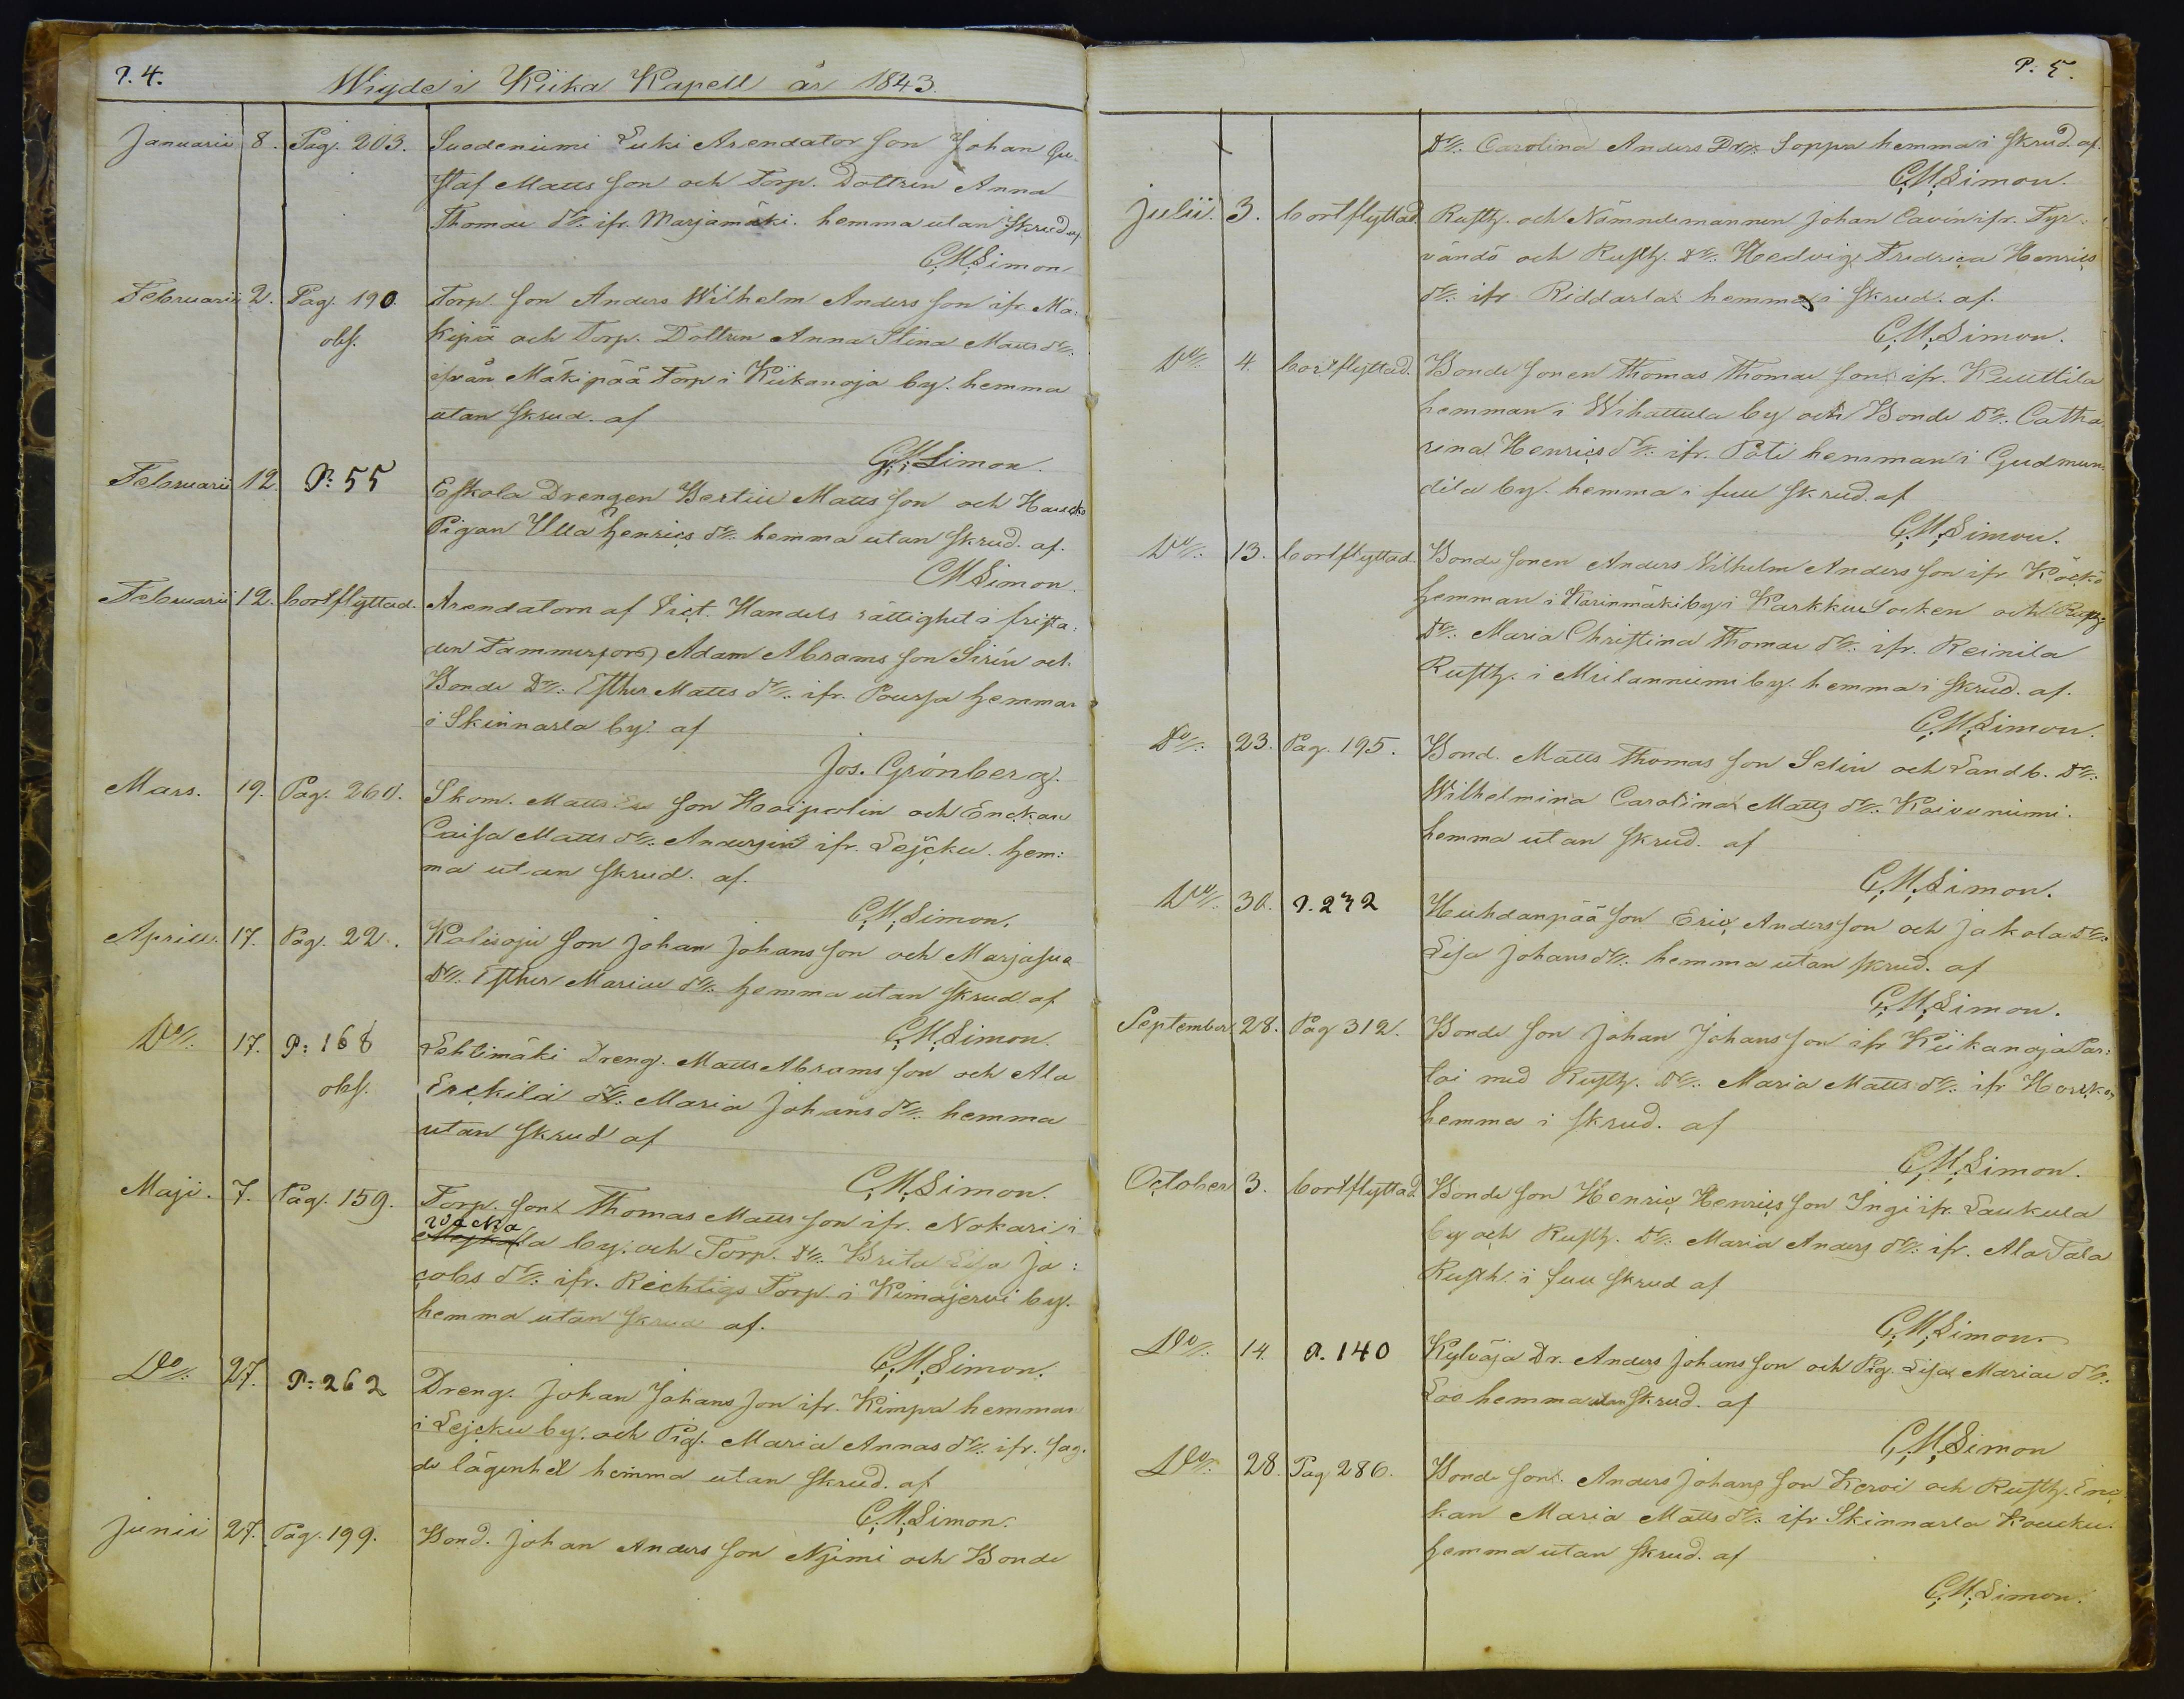 P. 4.
Wigde i Kiika Kapell år 1843.
Januarii 8. Pag. 203. Suodeniemi Luki Arendator Son Johan Gu-
staf Matts Son och Torp. Dottren Anna
Thomæ dr. ifr. Marjamäki. hemma utan Skrud af
C. M. Simon
Februarii 2. Pag. 190. Torp. Son Anders Wilhelm Anders Son ifr. Mä-
obs. kipä och Torp. Dottren Anna Stina Matts dr.
ifrån Mäkipää Torp i Kiikanoja by. hemma
utan Skrud. af
C. M. Simon.
Februarii 12. P: 55 Eskola Drengen Bertill Matts Son och
Pigan Ulla Henrics dr. hemma utan Skrud. af.
C M Simon.
Februarii 12. bortflyttad. Arendatorn af Vict. Handels rättighet i frista-
den Tammerfors, Adam Abrams Son Sirén och
Bonde Dr. Esther Matts dr. ifr. Poursa hemman
i Skinnarla by. af
Jos. Grönberg.
Mars. 19. Pag. 260. Skom. Matts Son Haapolin och Enckan
Caisa Matts dr. Andersin ifr. Lejcku. hem:
ma utan Skrud. af.
C. M. Simon.
Aprill. 17. Pag. 22. Kalisoju Son Johan Johans Son och Marjasua
Dr. Esther Mariæ dr. hemma utan Skrud. af
C. M. Simon.
Do 17. P: 168 Lehtimäki Dreng. Matts Abrams Son och Ala
obs. Erckilä dr. Maria Johans dr. hemma
utan Skrud af
C. M. Simon.
Maji. 7. Pag. 159. Torp. Son Thomas Matts Son ifr. Nokari i
wacka
la by. och Torp. dr. Brita Lisa Ja:
cobs dr. ifr. Rechtigs Torp. i Kimajerwi by.
hemma utan Skrud af.
C. M. Simon.
Do 27. P: 262 Dreng. Johan Johans Son ifr. Kimpa hemman
i Lejcku by. och Pig. Maria Annas dr. ifr. sag.
de lägenhet hemma utan Skrud. af
C. M. Simon.
Junii 27. Pag. 199. Bond. Johan Anders Son Njemi och Bonde
P. 5.
Dr. Carolina Anders Dr. Soppa hemma i Skrud. af.
C. M. Simon.
Julii. 3. bortflyttad. Rusth. och Nämndemannen Johan Cavén ifr. Tyr-
vändö och Rusth. Dr. Hedvig Fredrica Henrics
dr. ifr. Riddarla hemma i Skrud. af.
C. M. Simon.
Do 4. bortflyttad. Bonde Sonen Thomas Thomæ Son ifr. Kuuttila
hemman i Wihattula by och Bonde Dr. Catha
rina Henrics dr. ifr. Päti hemman i Gudmun
dila by. hemma i full Skrud. af
C. M. Simon.
Do 13. bortflyttad. Bonde Sonen Anders Wilhelm Anders Son ifr
hemman i Karinmäki by i Karkku Socken och Rusth
Dr. Maria Christina Thomæ dr. ifr. Reinila
Rusth. i Meilanniemi by. hemma i Skrud. af.
C. M. Simon.
Do 23. Pag. 195. Bond. Matts Thomas Son Selin och Landb. Dr.
Wilhelmina Carolina Matts dr. Koivuniemi.
hemma utan Skrud. af
C. M. Simon.
Do 30. P. 272 Huhdanpää Son Eric Anders Son och Jakola Dr.
Lisa Johans dr. hemma utan Skrud. af
C. M. Simon.
September 28. Pag 312. Bonde Son Johan Johans Son ifr Kiikanoja Par:
tai med Rusth. Dr. Maria Matts dr. ifr
hemma i Skrud. af
C. M. Simon.
October 3. bortflyttad. Bonde Son Henric Henrics Son Ingi ifr. Laukula
by och Rusth. Dr. Maria Anders dr. ifr. Ala Tala
Rusth. i full Skrud af
C. M. Simon.
Do 14. P. 140 Kylväjä Dr. Anders Johans Son och Pig. Lisa Mariæ dr.
hemma utan Skrud. af
C. M. Simon
Do 28. Pag 286. Bonde Son Anders Johans Son Keroi och Rusth. Enc
kan Maria Matts dr. ifr Skinnarla Koucku.
hemma utan Skrud. af
C. M. Simon.